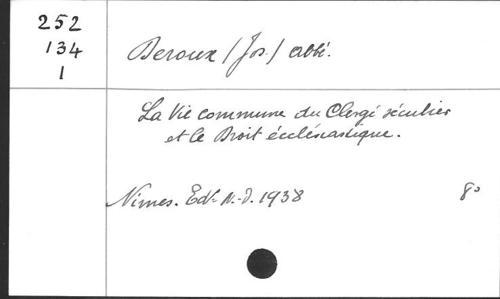 252
134
1
Deroux (Jos.) abbé.
La Vie commune du Clergé séculier
et le Droit ecclésiastique.
Nimes. Ed. N.-D. 1938 8°